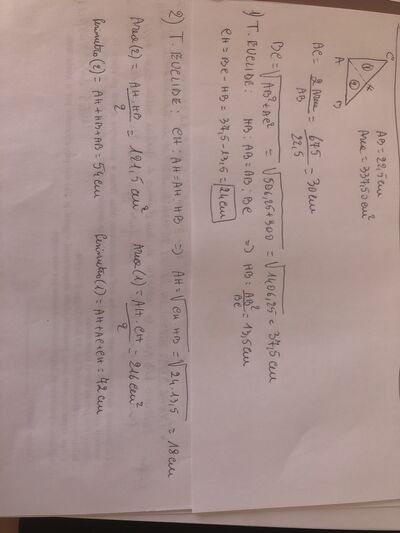 C
A
①
H
②
B
AB = 22,5 cm
Area = 337,50 cm²
AC = 2 Area / AB = 675 / 22,5 = 30 cm
BC = √AB² + AC² = √506,25 + 900 = √1406,25 = 37,5 cm
1) T. EUCLIDE: HB : AB = AB : BC ⇒ HB = AB² / BC = 13,5 cm
CH = BC - HB = 37,5 - 13,5 = 24 cm
2) T. EUCLIDE: CH : AH = AH : HB ⇒ AH = √CH · HB = √24 · 13,5 = 18 cm
Area (2) = AH · HB / 2 = 121,5 cm² Area (1) = AH · CH / 2 = 216 cm²
Perimetro (2) = AH + HB + AB = 54 cm Perimetro (1) = AH + AC + CH = 42 cm